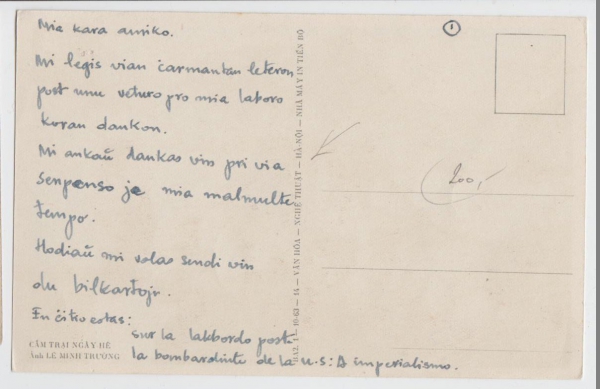 Mia kara amiko.
Mi legis vian ĉarmantan leteron
post unu veturo pro mia laboro
koran dankon.
Mi ankaŭ dankas vin pri via
senpenso je mia malmulte
tempo.
Hodiaŭ mi volas sendi vin
du bilkartojn.
En ĉi tio estas:
sur la lakbordo post
la bombardinte de la u.s: A imperialismo.
CẮM TRẠI NGÀY HÈ
Ảnh LÊ MINH TRƯỜNG
VĂN HÓA — NGHỆ THUẬT — HÀ-NỘI — NHÀ MÁY IN TIẾN BỘ
1
200,-